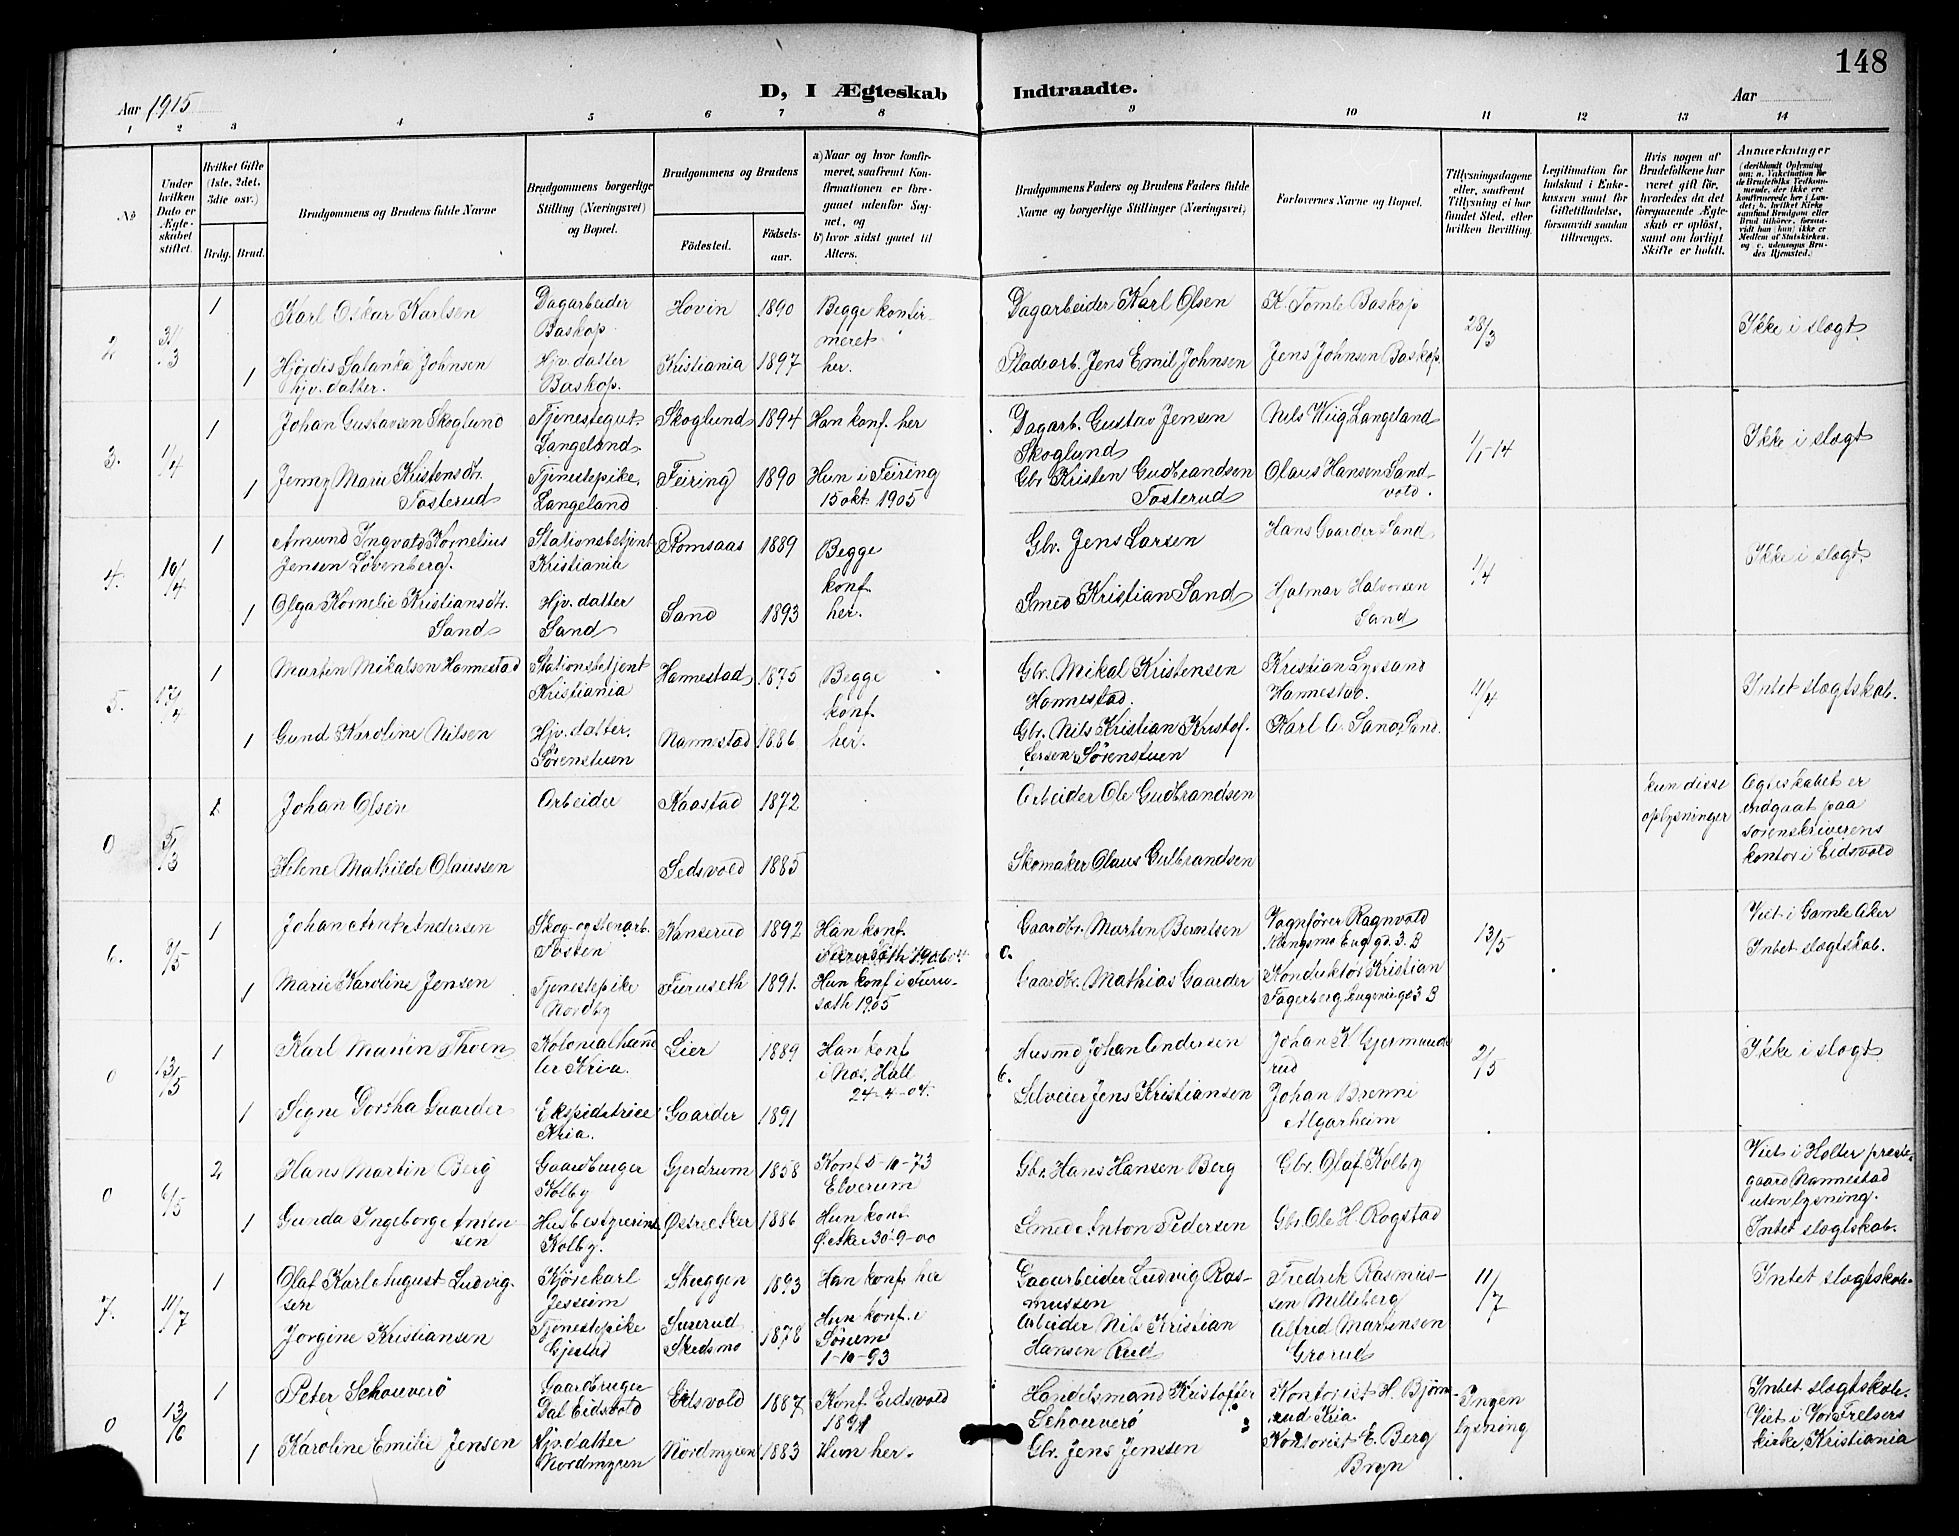 148
D, I Ægteskab Indtraadte.
Aar 1915
Aar
1 2 3 4 5 6 7 8 9 10 11 12 13 14
No
Under hvilken Dato er Ægteskabet stiftet.
Hvilket Gifte (1ste, 2det, 3die osv.)
Brdg. Brud.
Brudgommens og Brudens fulde Navne
Brudgommens borgerlige Stilling (Næringsvei) og Bopæl.
Brudgommens og Brudens
Fødested.
Fødselsaar.
a) Naar og hvor konfirmeret, saafremt Konfirmationen er foregaaet udenfor Sognet, og
b) hvor sidst gaaet til Alters.
Brudgommens Faders og Brudens Faders fulde Navne og borgerlige Stillinger (Næringsvei)
Forlovernes Navne og Bopæl.
Tillysningsdagene eller, saafremt Tillysning ei har fundet Sted, efter hvilken Bevilling.
Legitimation for Indskud i Enkekassen samt for Giftetilladelse, forsaavidt saadan tiltrænges.
Hvis nogen af Brudefolkene har været gift før, hvorledes da det foregaaende Ægteskab er opløst, samt om lovligt Skifte er holdt.
Anmærkninger
(deriblandt Oplysning om: a. Vakcination for de Brudefolks Vedkommende, der ikke ere konfirmerede her i Landet; b. hvilket Kirkesamfund Brudgom eller Brud tilhører, forsaavidt han (hun) ikke er Medlem af Statskirken, og c. udensogns Brudes Hjemsted.)
2 31/3 1 Karl Oskar Karlsen Dagarbeider Baskop Hovin 1890 Begge konfirmeret her. Dagarbeider Karl Olsen K. Tomle Baskop 28/3 Ikke i slægt
1 Hjørdis Johnsen hjv. datter. Hjv. datter Baskop. Kristiania 1897 Pladearb. Jens Emil Johnsen Jens Johnsen Baskop.
3. 1/4 1 Johan Gustavsen Skoglund Tjenestegut Langeland Skoglund 1894 Han konf. her Dagarb. Gustav Jensen Skoglund Nils Wiig Langeland 1/1-14 Ikke i slægt
1 Jenny Marie Kristensdtr. Tosterud Tjenestepike Langeland Feiring 1890 Hun i Feiring 15 okt. 1905 Gbr. Kristen Gudbrandsen Tosterud Olaus Hansen Sandvold.
4. 10/4 1 Amund Ingvald Kornelius Jensen Løvenberg. Stationsbetjent Kristiania Romsaas 1889 Begge konf. her. Gbr. Jens Larsen Hans Gaarder Sand 1/4 Ikke i slægt
1 Olga Kornelie Kristiansdtr. Sand Hjv. datter Sand Sand 1893 Smed Kristian Sand Hjalmar Halvorsen Sand
5. 17/4 1 Martin Mikalsen Hannestad Stationsbetjent Kristiania Hannestad 1875 Begge konf. her. Gbr. Mikal Kristensen Hannestad. Kristian Hannestad. 11/4 Intet slægtskab.
1 Gund Karoline Nilsen Hjv. datter. Sørenstuen Nannestad 1886 Gbr. Nils Kristian Kristoffersen Sørenstuen Karl A. Sand, Sand.
0 5/3 Johan Olsen Arbeider Kaastad 1872 Arbeider Ole Gudbrandsen kun disse oplysninger Ægteskabet er indgaat paa sorenskriverens kontor i Eidsvold
Helene Mathilde Olaussen 1885 Skomaker Olaus Gulbrandsen
6. 9/5 1 Johan Andersen Skog- og stenarb. Tosten 1892 Han konf. Gaardbr. Martin Berntsen Vognfører Ragnvald 3. B 13/5 Viet i Gamle Aker Intet slægtskab.
1 Marie Karoline Jensen Tjenestepike Nordby Furuseth 1891. Hun konf i Furusæth 1905 Gaardbr. Mathias Gaarder Konduktør Kristian Fagerberg 3 B
0 13/5 1 Karl Martin Thoen Kolonialhandler Kria. Lier 1889 Han konf i Næs, Hall 24-4-04. Husmd Johan Andersen Johan K. Gjermundrud 2/5 Ikke i slægt
1 Signe Dorthea Gaarder Ekspeditrice Kria. Gaarder 1891 Selveier Jens Kristiansen Johan Brenni Algarheim
0 6/5 2 Hans Martin Berg Gaardbruger Kolby Gjerdrum 1858 Konf 5-10-73 Elverum Gbr. Hans Hansen Berg Gbr. Olaf Kolby Viet i Holter prestegaard Nannestad uten lysning. Intet slægtskab.
1 Gunda Ingeborg Antonsen Husbestyrerinde Kolby. Østre Aker 1886 Hun konf Ø. Aker 30-9-00 Smed Anton Pedersen Gbr. Ole H. Rogstad
7. 11/7 1 Olaf Karl August Ludvigsen Kjørekarl Jessum Skeggen 1893 Han konf. her Dagarbeider Ludvig Rasmussen Fredrik Rasmussen Milleberg 11/7 Intet slægtskab.
Jorgine Kristiansen Tjenestepike Gjestad Skedsmo 1878 Hun konf. i Sørum 1-10-93 Arbeider Nils Kristian Hansen Rud Alfred Martensen Grorud
0 13/6 1 Peter Schouverö Gaardbruger Dal Eidsvold Eidsvold 1887 Konf Eidsvold Handelsmand Kristoffer Schouverö Kontorist H. Bjørnerud Kria Ingen lysning Intet slægtskab. Viet i Vor Frelsers kirke, Kristiania
1 Karoline Emilie Jensen Hjv. datter Nordmyren Nordmyren 1883 Hun her. Gbr. Jens Jenssen Kontorist E. Berg Bryn